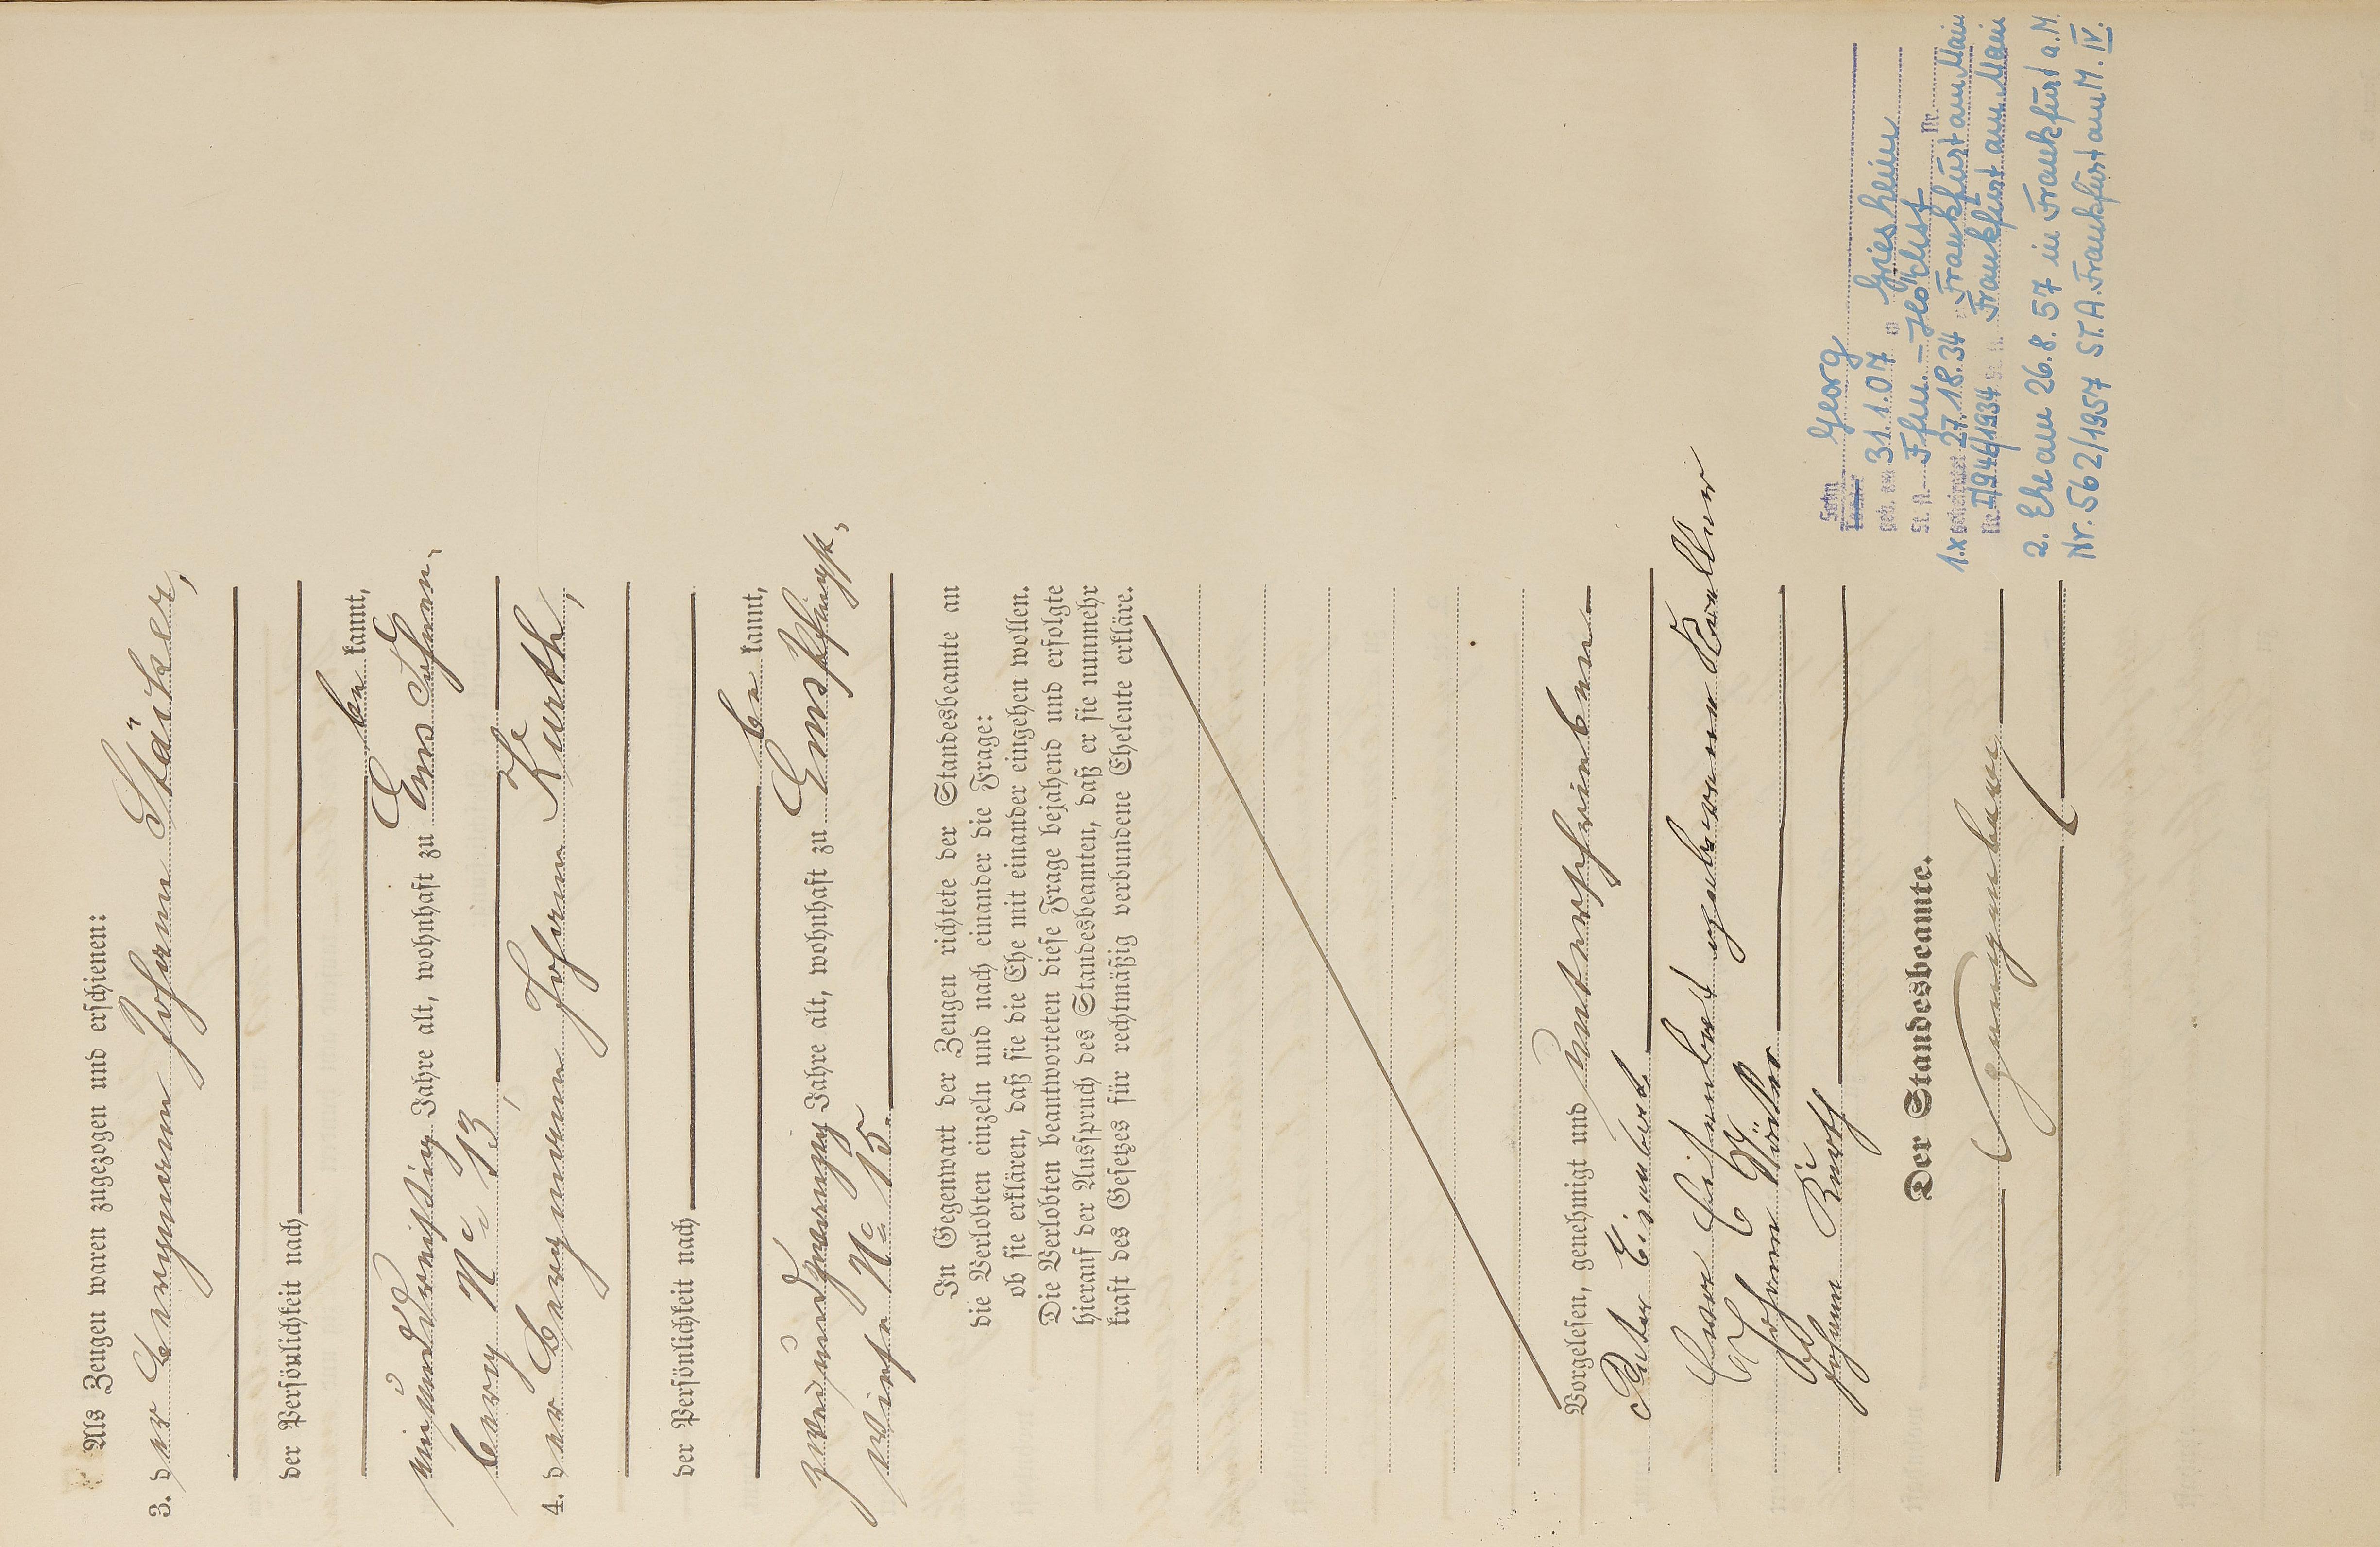 Als Zeugen waren zugezogen und erschienen:
3. der Bergmann Johann Stäicker,
der Persönlichkeit nach
be kannt,
neununddreißig Jahre alt, wohnhaft zu Ems Ehren-
berg No 13,
4. der Bergmann Johann Kurth,
der Persönlichkeit nach
be kannt,
zweiundzwanzig Jahre alt, wohnhaft zu Ems,
No 15.
In Gegenwart der Zeugen richtete der Standesbeamte an
die Verlobten einzeln und nach einander die Frage:
ob sie erklären, daß sie die Ehe mit einander eingehen wollen.
Die Verlobten beantworteten diese Frage bejahend und erfolgte
hierauf der Ausspruch des Standesbeamten, daß er sie nunmehr
kraft des Gesetzes für rechtmäßig verbundene Eheleute erkläre.
Vorgelesen, genehmigt und unterschrieben
Peter Eisenbart
Eisenbart geborene
Johann
Johann Kurth
Der Standesbeamte.
Sohn Georg
Tochter
geb. am 31.1.07 in Griesheim
St. A. Ffm.-Höchst Nr.
1.x geheiratet 27.18.34 Frankfurt am Main
Nr. II/946/1934 St. A. Frankfurt am Main
2. Ehe am 26.8.57 in Frankfurt a.M.
Nr. 562/1957 ST.A. Frankfurt am M. IV.